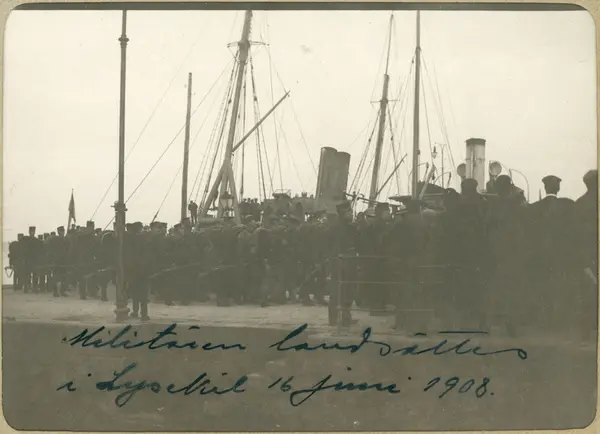 Militären landsättes
i Lysekil 16 juni 1908.